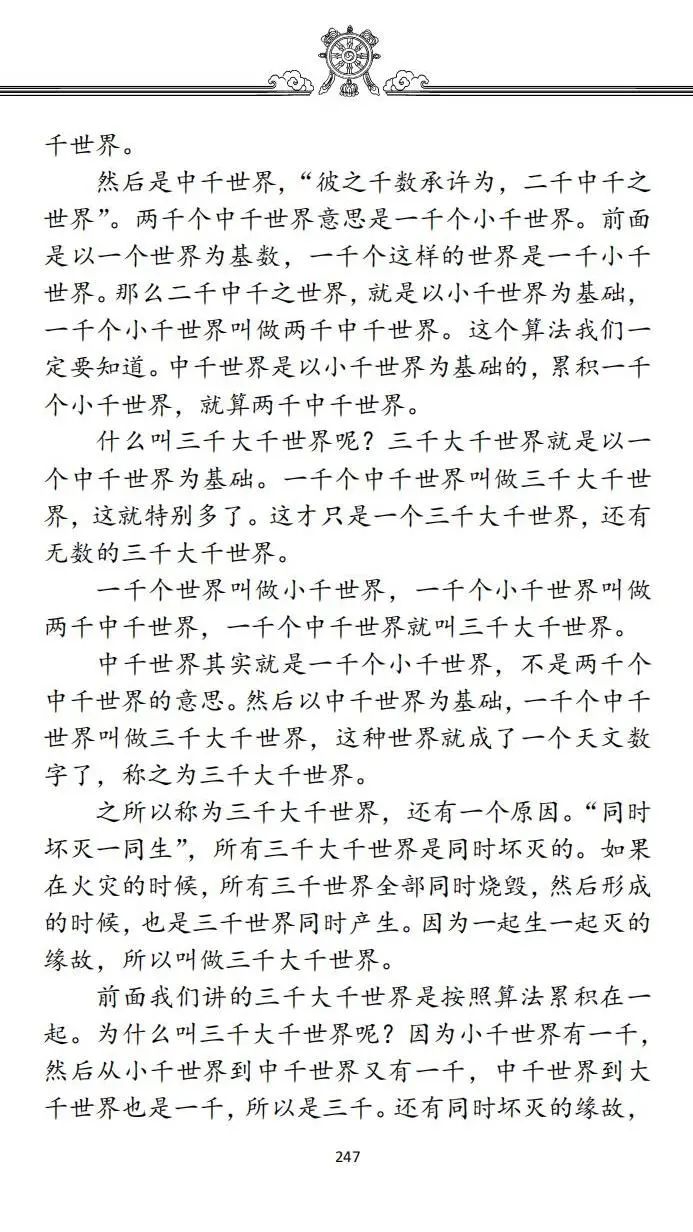 千世界。
然后是中千世界，“彼之千数承许为，二千中千之
世界”。两千个中千世界意思是一千个小千世界。前面
是以一个世界为基数，一千个这样的世界是一千小千
世界。那么二千中千之世界，就是以小千世界为基础，
一千个小千世界叫做两千中千世界。这个算法我们一
定要知道。中千世界是以小千世界为基础的，累积一千
个小千世界，就算两千中千世界。
什么叫三千大千世界呢？三千大千世界就是以一
个中千世界为基础。一千个中千世界叫做三千大千世
界，这就特别多了。这才只是一个三千大千世界，还有
无数的三千大千世界。
一千个世界叫做小千世界，一千个小千世界叫做
两千中千世界，一千个中千世界就叫三千大千世界。
中千世界其实就是一千个小千世界，不是两千个
中千世界的意思。然后以中千世界为基础，一千个中千
世界叫做三千大千世界，这种世界就成了一个天文数
字了，称之为三千大千世界。
之所以称为三千大千世界，还有一个原因。“同时
坏灭一同生”，所有三千大千世界是同时坏灭的。如果
在火灾的时候，所有三千世界全部同时烧毁，然后形成
的时候，也是三千世界同时产生。因为一起生一起灭的
缘故，所以叫做三千大千世界。
前面我们讲的三千大千世界是按照算法累积在一
起。为什么叫三千大千世界呢？因为小千世界有一千，
然后从小千世界到中千世界又有一千，中千世界到大
千世界也是一千，所以是三千。还有同时坏灭的缘故，
247